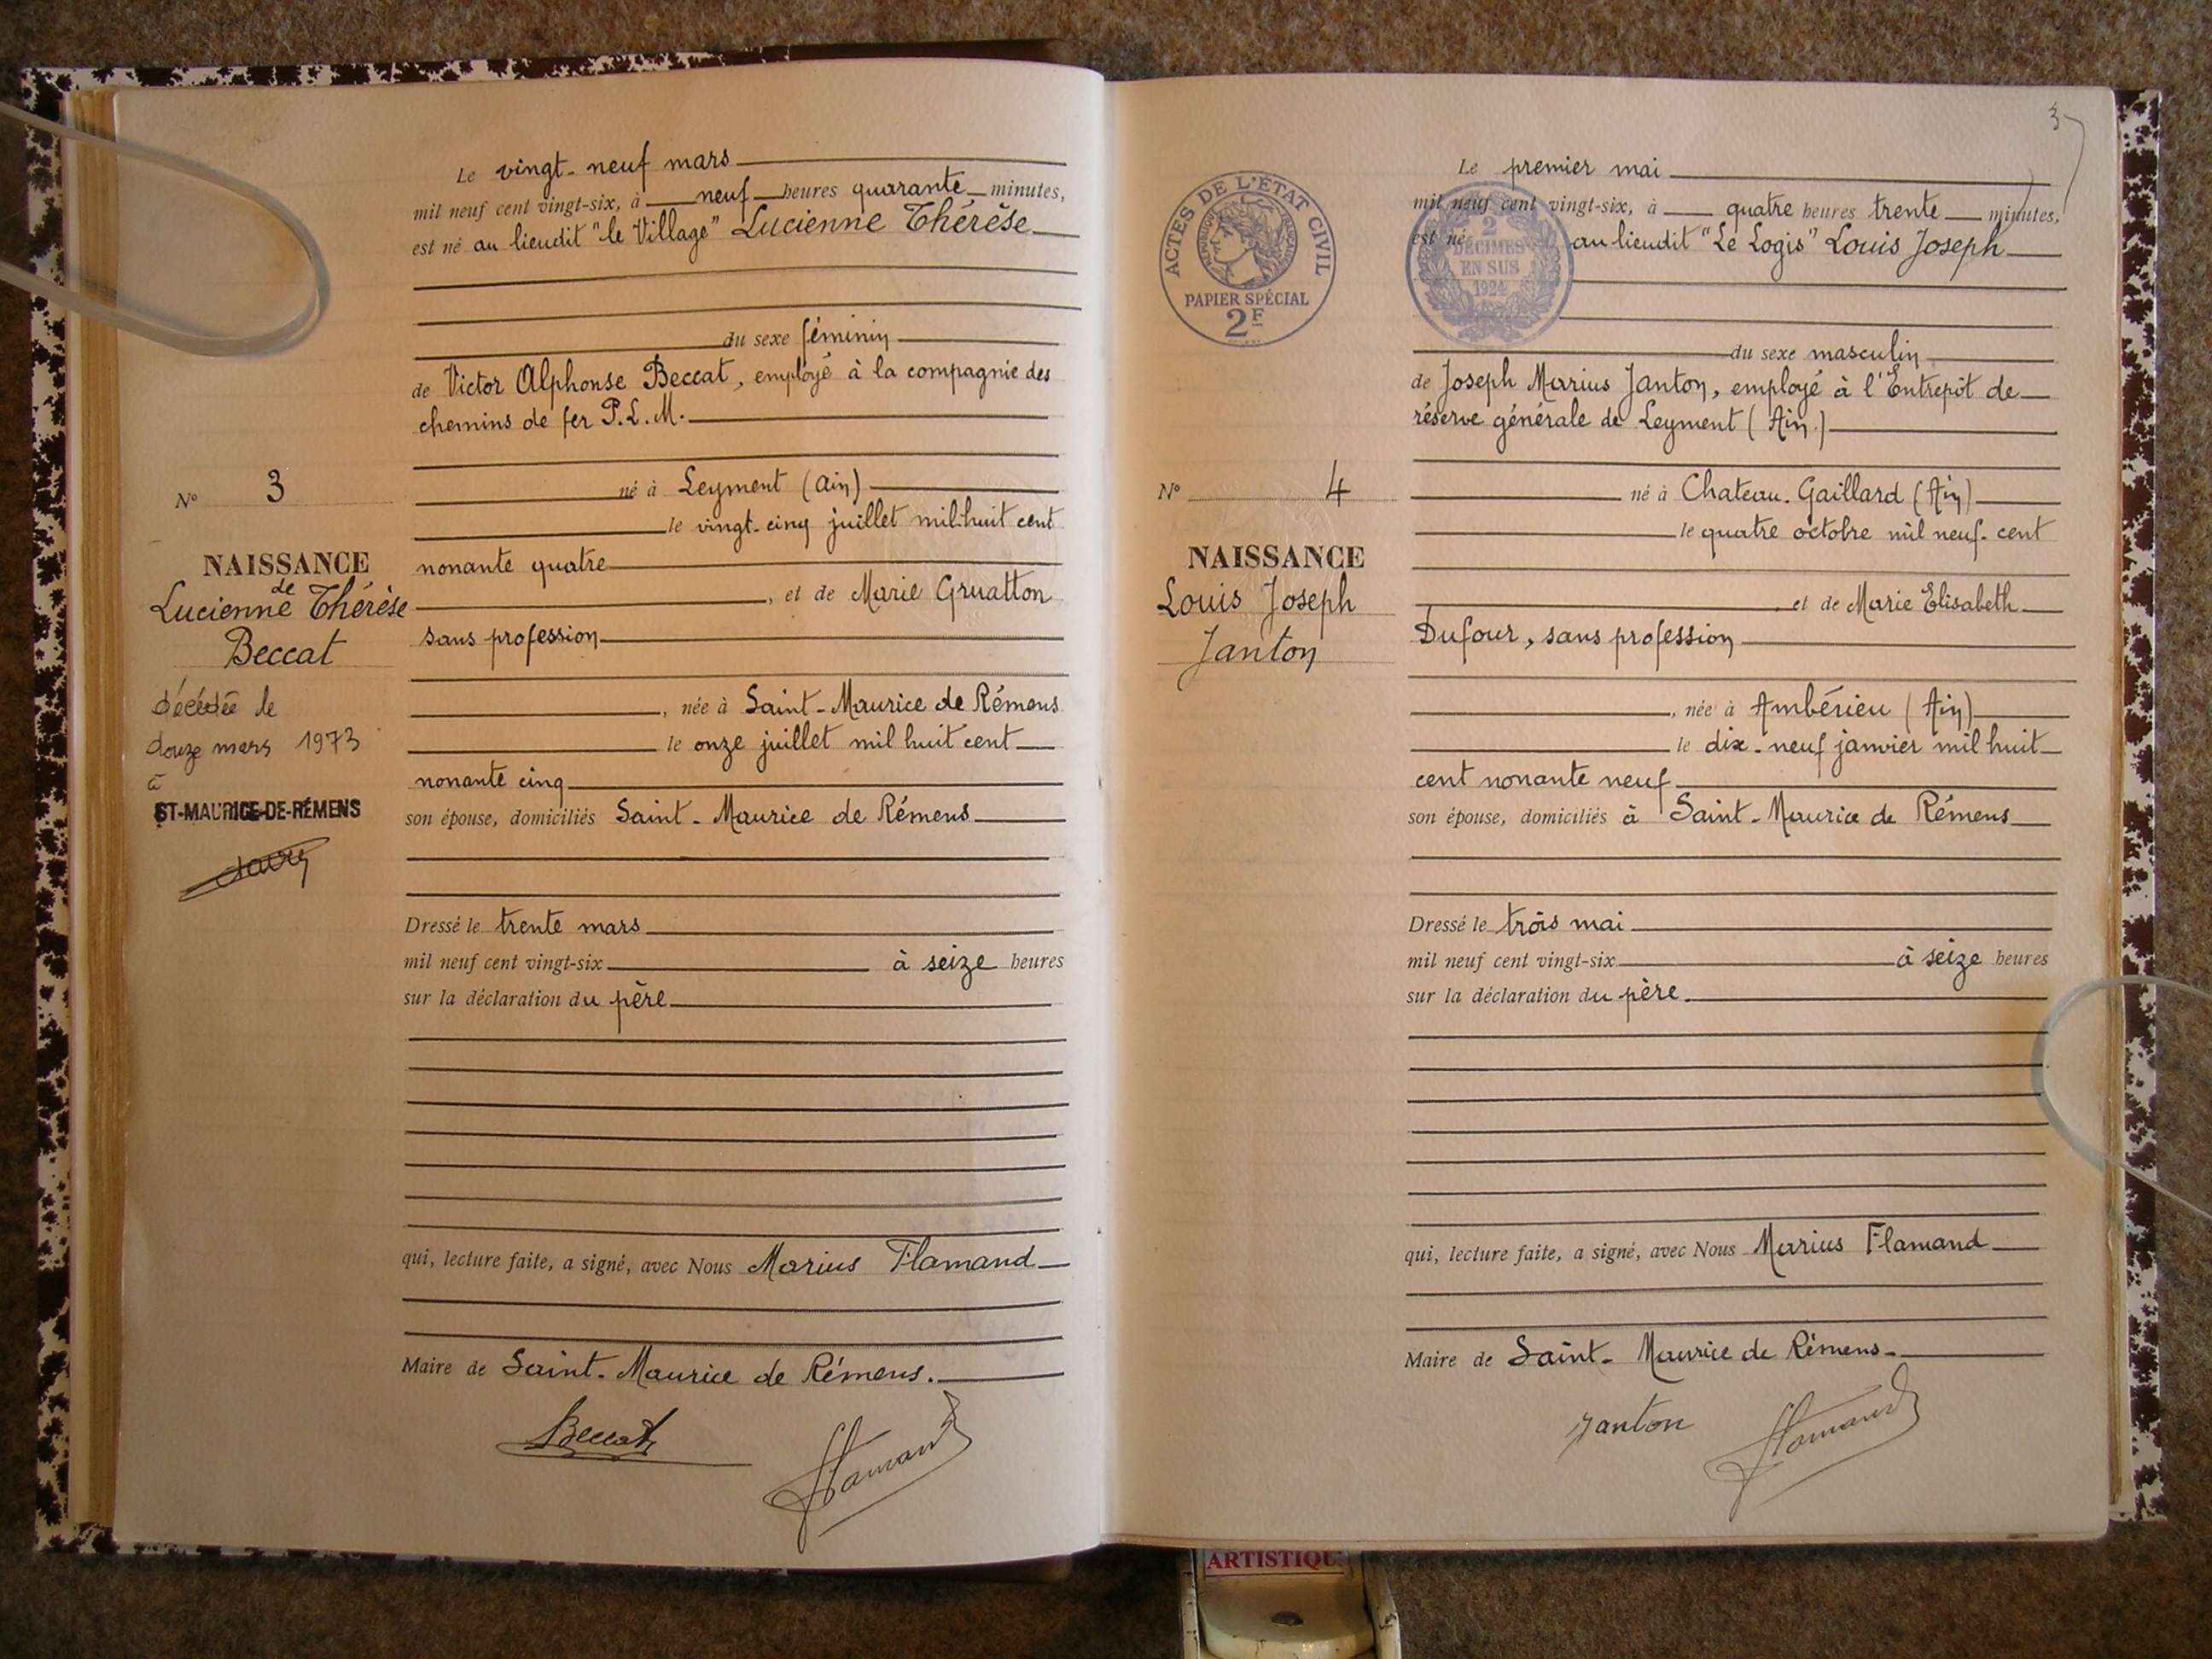 Le vingt-neuf mars
mil neuf cent vingt-six, à neuf heures quarante minutes,
est né au lieudit "le Village" Lucienne Thérèse
du sexe féminin
de Victor Alphonse Beccat, employé à la compagnie des
chemins de fer P.L.M.
né à Leyment (Ain)
le vingt-cinq juillet mil huit cent
nonante quatre
, et de Marie Gruatton
sans profession
, née à Saint-Maurice de Rémens
le onze juillet mil huit cent
nonante cinq
son épouse, domiciliés Saint-Maurice de Rémens
Dressé le trente mars
mil neuf cent vingt-six à seize heures
sur la déclaration du père
qui, lecture faite, a signé, avec Nous Marius Flamand
Maire de Saint-Maurice de Rémens.
Beccat
Flamand
N° 3
NAISSANCE
de
Lucienne Thérèse
Beccat
décédée le
douze mars 1973
à
ST-MAURICE-DE-RÉMENS
3
ACTES DE L'ÉTAT CIVIL
PAPIER SPÉCIAL
2F
2
DÉCIMES
EN SUS
1924
Le premier mai
mil neuf cent vingt-six, à quatre heures trente minutes,
est né au lieudit "Le Logis" Louis Joseph
du sexe masculin
de Joseph Marius Janton, employé à l'Entrepôt de
réserve générale de Leyment (Ain)
né à Chateau-Gaillard (Ain)
le quatre octobre mil neuf-cent
, et de Marie Elisabeth
Dufour, sans profession
, née à Ambérieu (Ain)
le dix-neuf janvier mil huit
cent nonante neuf
son épouse, domiciliés à Saint-Maurice de Rémens
Dressé le trois mai
mil neuf cent vingt-six à seize heures
sur la déclaration du père.
qui, lecture faite, a signé, avec Nous Marius Flamand
Maire de Saint-Maurice de Rémens.
Janton
Flamand
N° 4
NAISSANCE
Louis Joseph
Janton
ARTISTIQU